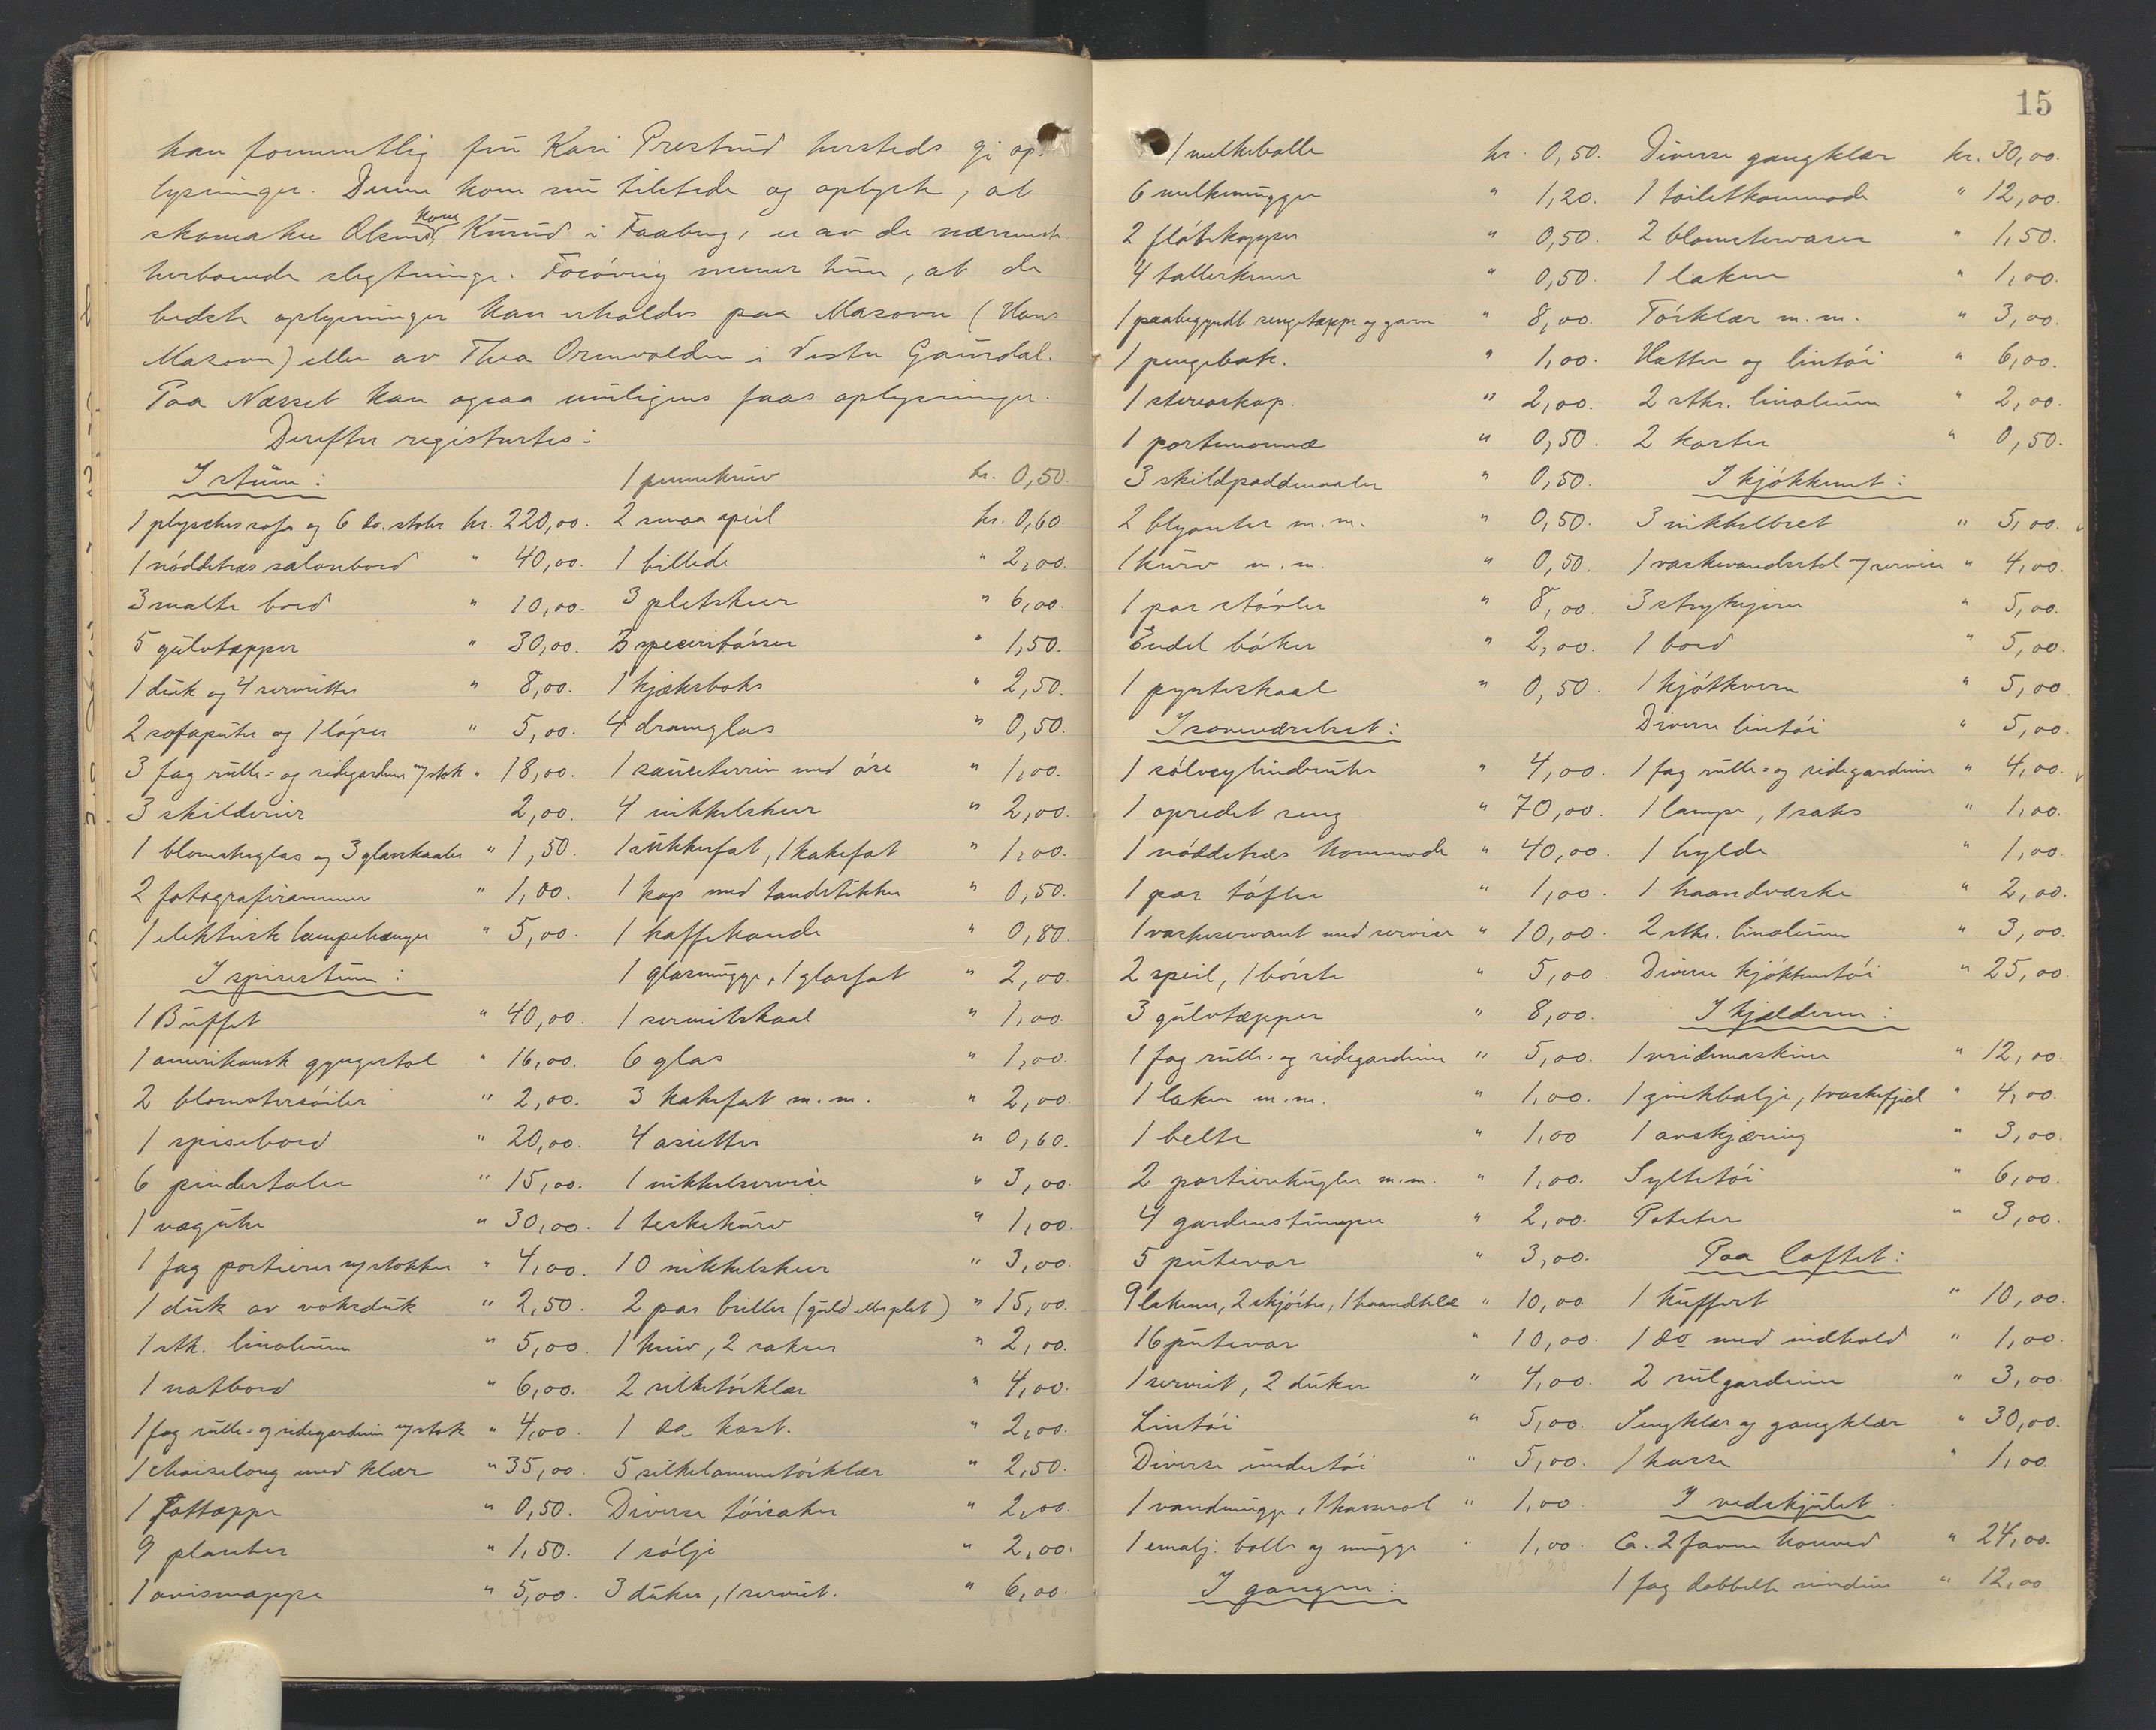 kan formentlig fru Kari Prestrud hersteds gi op-
lysninger. Denne kom nu tilstede og oplyste, at
skomaker Olsen, Kurud i Faaberg, er av de nærmeste
herboende slegtninge. Forøvrig mener hun, at de
bedste oplysninger kan erholdes paa Masovn (Hans
Masovn) eller av Thea Ormvolden i Vestre Gausdal.
Paa Næsset kan ogsaa muligens faaes oplysninger.
Derefter registrertes:
I stuen:
1 plyschessofa og 6 do. stoler kr. 220,00.
1 nøddetræs salonbord " 40,00.
3 malte bord " 10,00.
5 gulvtæpper " 30,00.
1 duk og 4 servietter " 8,00.
2 sofaputer og 1 løper " 5,00.
3 fag rulle- og sidegardiner m/ stok " 18,00.
3 skilderier 2,00.
1 blomsterglas og 3 glasskaaler " 1,50.
2 fotografirammer " 1,00.
1 elektrisk lampehænger " 5,00.
I spisestuen:
1 Buffet " 40,00.
1 amerikansk gyngestol " 16,00.
2 blomstersøiler " 2,00.
1 spisebord " 20,00.
6 pindestoler " 15,00.
1 væguhr " 30,00.
1 fag portierer m/ stokker " 4,00.
1 duk av voksduk " 2,50.
1 stk. linoleum " 5,00.
1 natbord " 6,00.
1 fag rulle- og sidegardiner m/ stok " 4,00.
1 chaiselong med klær " 35,00.
1 fottæppe " 0,50.
9 planter " 1,50.
1 avismappe " 5,00.
1 pennekniv kr. 0,50.
2 smaa speil kr. 0,60.
1 billede " 2,00.
3 pletskeer " 6,00.
3 speceribøsser " 1,50.
1 kjæksboks " 2,50.
4 dramglas " 0,50.
1 sauceterrin med øse " 1,00.
4 nikkelskeer " 2,00.
1 sukkerfat, 1 kakefat " 1,00.
1 kop med tandstikker " 0,50.
1 kaffekande " 0,80.
1 glasmugge, 1 glasfat " 2,00.
1 servietskaal " 1,00.
6 glas " 1,00.
3 kakefat m.m. " 2,00.
4 asietter " 0,60.
1 nikkelservice " 3,00.
1 teskekurv " 1,00.
10 nikkelskeer " 3,00.
2 par briller (guld eller plet) " 15,00.
1 kniv, 2 sakser " 2,00.
2 silketørklær " 4,00.
1 do. kast. " 2,00.
5 silkelommetørklær " 2,50.
Diverse tøisaker " 2,00.
1 sølje " 2,00.
3 duker, 1 serviet. " 6,00.
15
1 melkebolle kr. 0,50.
6 melkemugger " 1,20.
2 fløtekopper " 0,50.
4 tallerkener " 0,50.
1 paabegyndt sengetæppe og garn " 8,00.
1 pengebok. " 1,00.
1 stereoskop. " 2,00.
1 portemonnæ " 0,50.
3 skildpaddenaaler " 0,50.
2 blyanter m.m. " 0,50.
1 kurv m.m. " 0,50.
1 par støvler " 8,00.
Endel bøker " 2,00.
1 pynteskaal " 0,50.
I soveværelset:
1 sølvcylinderuhr " 4,00.
1 opredet seng " 70,00.
1 nøddetræs kommode " 40,00.
1 par tøfler " 1,00.
1 vaskeservant med service " 10,00.
2 speil, 1 børste " 5,00.
3 gulvtæpper " 8,00.
1 fag rulle- og sidegardiner " 5,00.
1 laken m.m. " 1,00.
1 belte " 1,00
2 portierekugler m.m. " 1,00.
4 gardinstænger " 2,00.
5 putevar " 3,00.
9 lakener, 2 skjørter, 1 haandklæ " 10,00.
16 putevar " 10,00.
1 serviet, 2 duker " 4,00.
Lintøi " 5,00.
Diverse undertøi " 5,00.
1 vandmugge, 1 kasserol " 1,00.
1 emalj. bolle og mugge " 1,00.
I gangen:
Diverse gangklær kr. 30,00.
1 toiletkommode " 12,00.
2 blomstervaser " 1,50.
1 laken " 1,00.
Tørklær m.m. " 3,00.
Hatter og lintøi " 6,00.
2 stkr. linoleum " 2,00.
2 koster " 0,50.
I kjøkkenet:
3 nikkelbret " 5,00.
1 vaskevandsstol m/ service " 4,00.
3 strykejern " 5,00.
1 bord " 5,00.
1 kjøtkvern " 5,00.
Diverse lintøi " 5,00.
1 fag rulle- og sidegardiner " 4,00.
1 lampe, 1 saks " 1,00.
1 hylde " 1,00.
1 haandvæske " 2,00.
2 stkr. linoleum " 3,00.
Diverse kjøkkentøi " 25,00.
I kjælderen:
1 vridemaskine " 12,00.
1 zinkbalje, 1 vaskefjel " 4,00.
1 anskjæring " 3,00.
Syltetøi " 6,00.
Poteter " 3,00.
Paa loftet:
1 kuffert " 10,00.
1 do med indhold " 1,00.
2 rulgardiner " 3,00.
Sengklær og gangklær " 30,00.
1 kasse " 1,00.
I vedskjulet.
Ca. 2 favne konved " 24,00.
1 fag dobbelte vinduer " 12,00